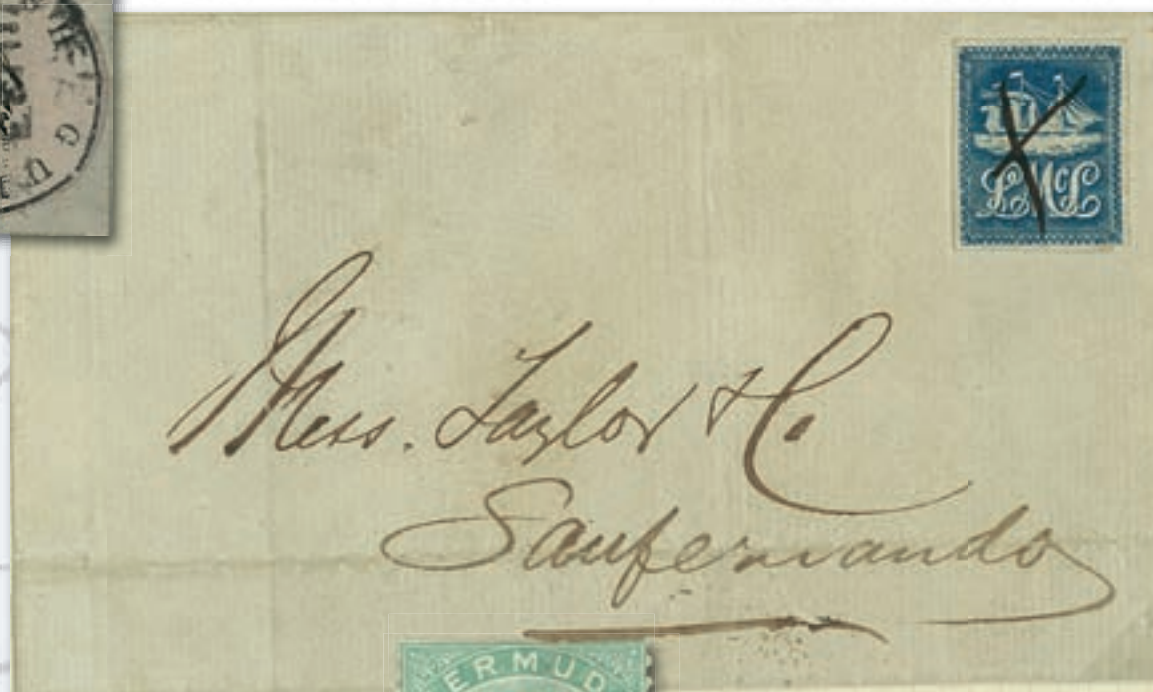 LMcL
Mess. Taylor & Co
Sanfernando
ERMUD